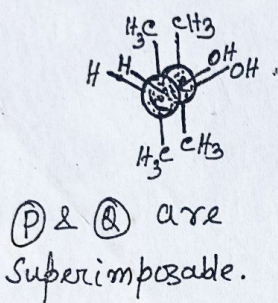 H₃C CH3
H H OH
OH
H₃C CH3
Ⓟ & Ⓠ are
Superimposable.